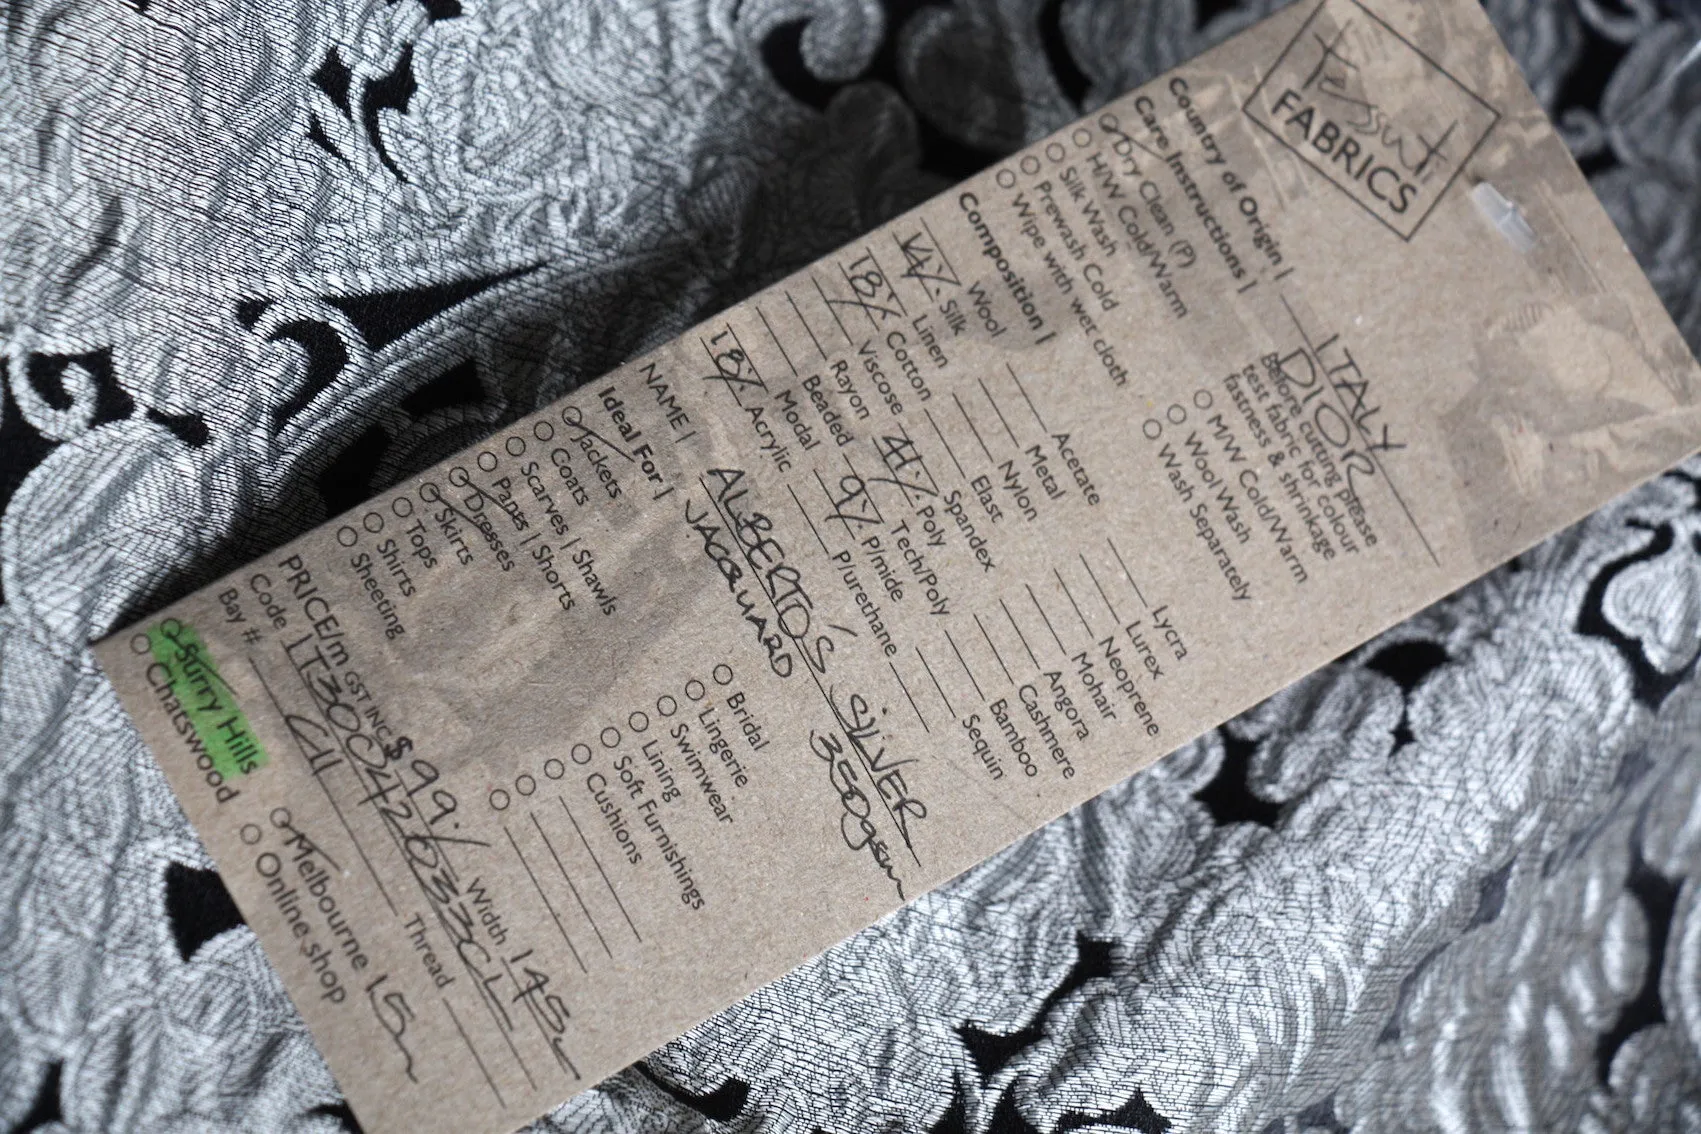 Tessuti
FABRICS
Country of Origin | ITALY
DIOR
Care Instructions |
Before cutting please
test fabric for colour
fastness & shrinkage
Dry Clean (P)
H/W Cold/Warm
Silk Wash
Prewash Cold
Wipe with wet cloth
M/W Cold/Warm
Wool Wash
Wash Separately
Composition |
Wool Acetate Lycra
14% Silk Metal Lurex
Linen Nylon Neoprene
18% Cotton Elast Mohair
Viscose Spandex Angora
Rayon 41% Poly Cashmere
Beaded Tech/Poly Bamboo
Modal 9% P/mide Sequin
18% Acrylic P/urethane
NAME | ALBERTO'S SILVER
JACQUARD 350gsm
Ideal For |
Jackets
Coats
Scarves | Shawls
Pants | Shorts
Dresses
Skirts
Tops
Shirts
Sheeting
Bridal
Lingerie
Swimwear
Lining
Soft Furnishings
Cushions
PRICE/m GST INC $99/ Width 145cm
Code
Bay # C11 Thread
Surry Hills Melbourne 15m
Chatswood Online shop